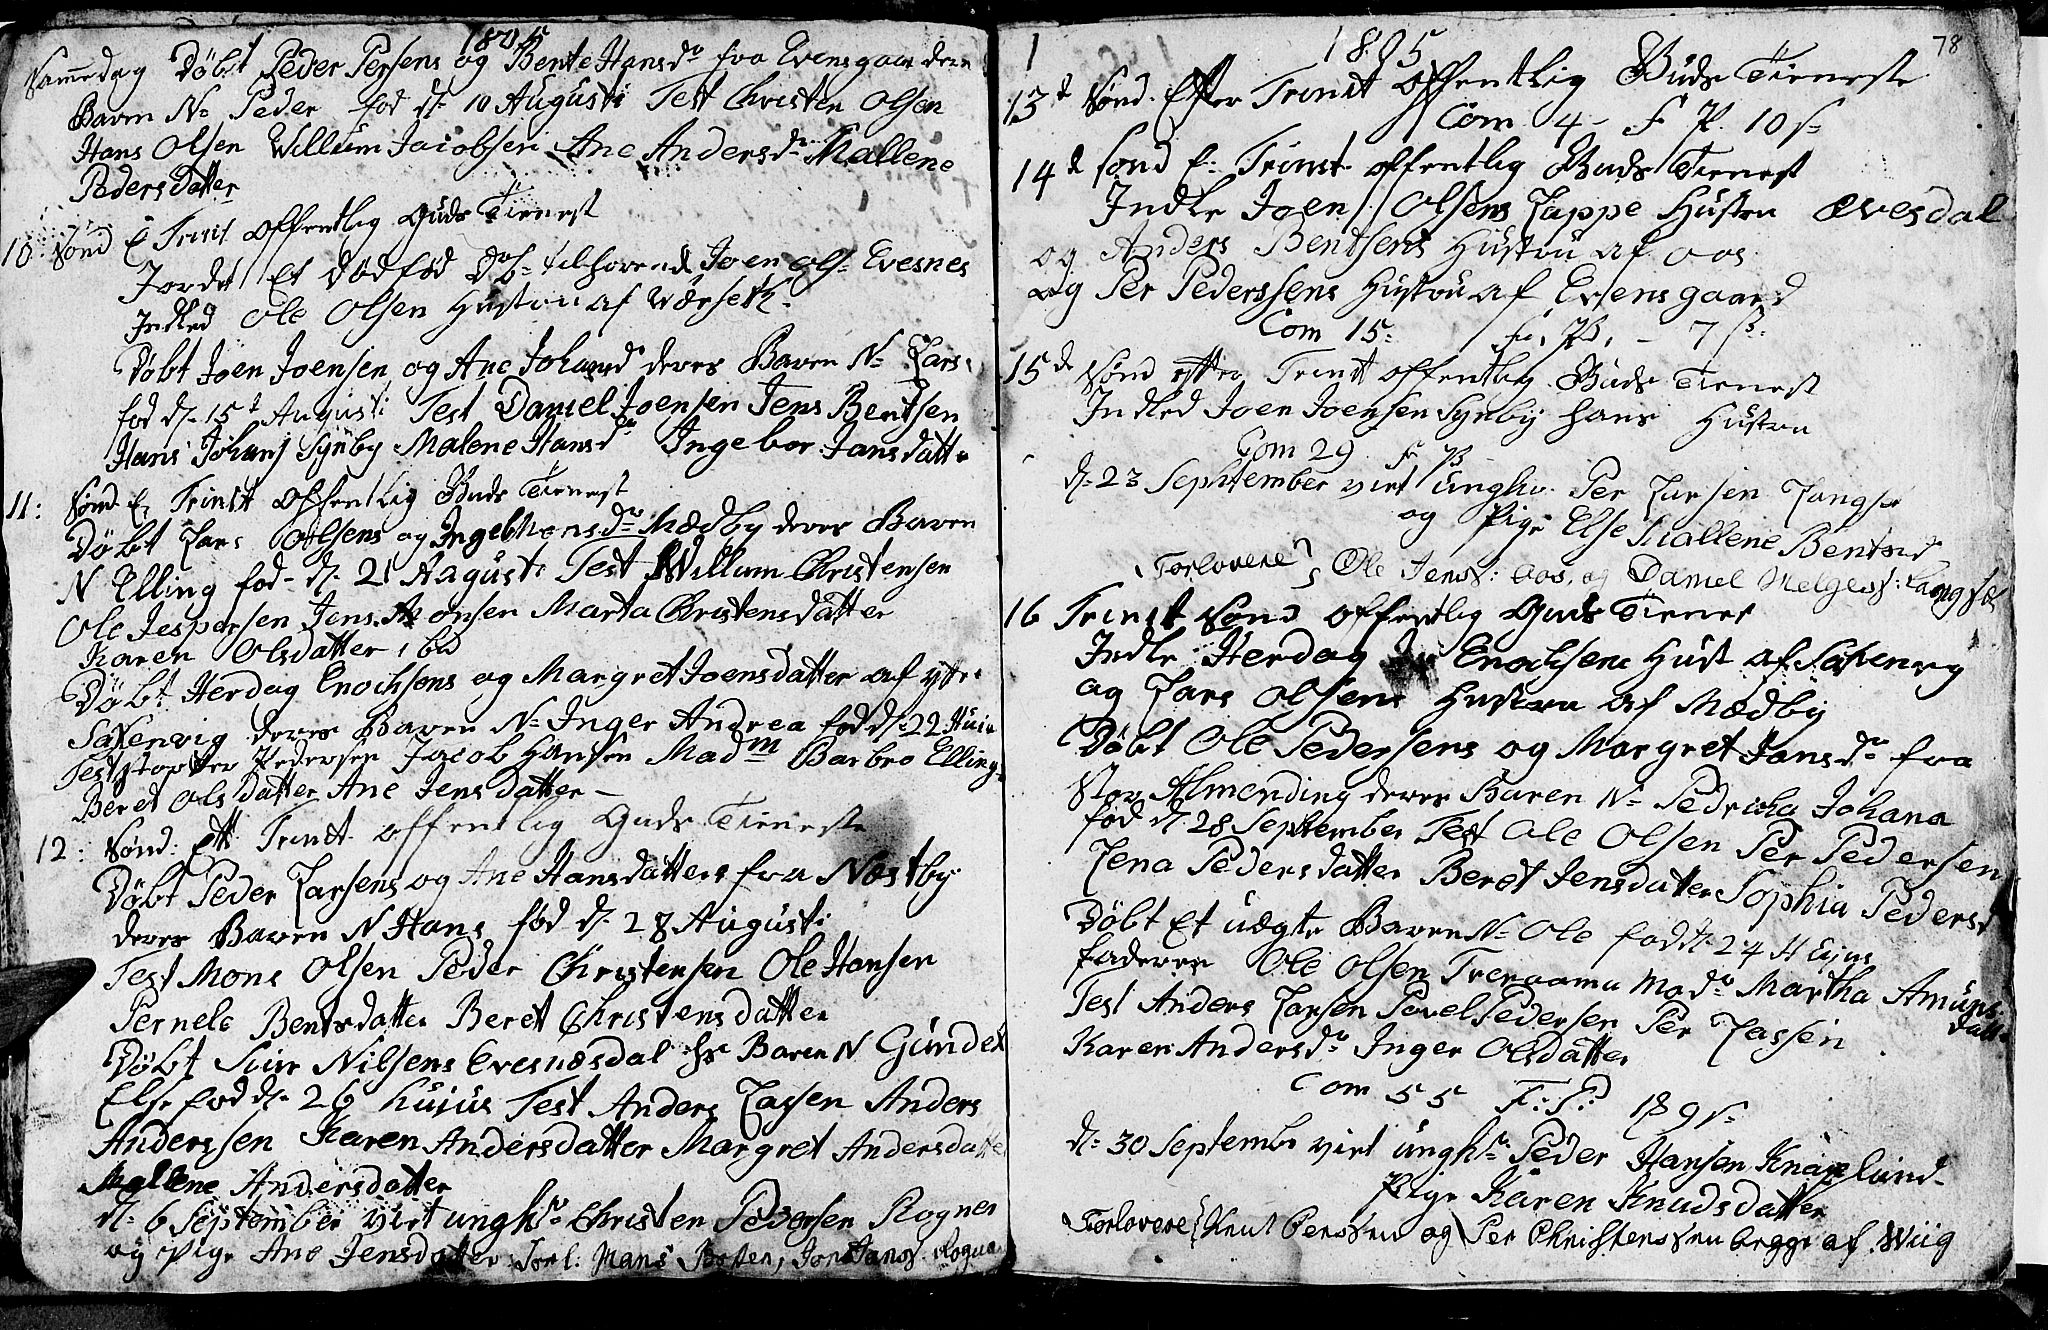 1805
Sammedag Døbt Peder Persens og Bente Hansdr fra Evensgaarden
Baren No Peder fød d. 10 Augusti Test Christen Olsen
Hans Olsen Willum Jacobsen Ane Andersdr Mallene
Pedersdatter
10. Sønd E Trinit offentlig Guds Tienest
Jordet Et dødfød tilhørende Joen Ols= Evesnes
Indled Ole Olsen Hustrue af
Døbt Joen Joensen og Ane Johansd deres Baren N= Lars
fød d. 15d Augusti Test Daniel Joensen Jens Bentsen
Hans Johans Synby Malene Hansdr Ingebor Jansdatter
11: Sønd E. Trinit offentlig Guds Tienest
Døbt Lars Olsens og Ingebhansdr Mædby deres Baren
N Elling fød d. 21 Augusti Test Willum Christensen
Ole Jespersen Jens Marta Christensdatter
Karen Olsdatter ibd
Døbt Herdag Enochsens og Margret Joensdatter af ytre
Saxenvig deres Baren N= Inger Andrea fød d. 22
Test Pedersen Jacob Hansen Madm Barbro Elling
Beret Olsdatter Ane Jensdatter
12: Sønd: Eft Trinit offentlig Guds Tieneste
Døbt Peder Larsens og Ane Hansdatters fra Næstby
deres Baren N Hans fød d. 28 Augusti
Test Mons Olsen Peder Christensen Ole Hansen
Pernele Bentsdatter Beret Christensdatter
Døbt Siur Nilsens Evenæsdal hs Baren N Gundel
Else fød d. 26 hujus Test Anders Lassen Anders
Anderssen Karen Andersdatter Margret Andersdatter
Mallene Andersdatter
d. 6 September viet unghr Christen Pedersen Rognen
og Pige Ane Jensdatter Forl: Hans Jon Jans. Rogna
78
1
1805
13d Sønd. Efter Trinit offentlig Guds Tieneste
Com 4- F P. 10 s=
14d Sønd E: Trinit offentlig Guds Tienest
Indle Joen Olsens Lappe Hustru Evesdal
og Anders Bentsens Hustru af Aos
og Per Pederssens Hustru af Evensgaard
Com 15: F. P. - 7 s:
15d Sønd efter Trinit offentlig Guds Tienest
Indled Joen Joensen Synby hans Hustru
Com 29 F P
d. 23 September viet ungkr. Per Larsen Langs
og Pige Else Mallene Bentsd
Forlovere Ole Jenss: Aos, og Daniel Helgess: Langsæ
16 Trinit Sønd offentlig Guds Tienest
Indle Herdag Enochsens Hust af Saxenvig
og Lars Olsens Hustru af Mædby
Døbt Ole Pedersens og Margret Jansdr fra
Stor Almending deres Baren N= Pedricha Johana
fød d 28 September Test Ole Olsen Per Pedersen
Lena Pedersdatter Beret Jensdatter Sophia Pedersd
Døbt Et uægte Baren N= Ole fød d. 24 Hujus
faderen Ole Olsen Trenaama Modr Martha Amunds
datt.
Test Anders Larsen Povel Pedersen Per Lassen
Karen Andersdr Inger Olsdatter
Com 55 F: P: 189 s=
d= 30 Septembr viet unghr Peder Hansen Knaplund
Pige Karen Knudsdatter
Forlovere Knut Perssen og Per Christenssen begge af Wiig